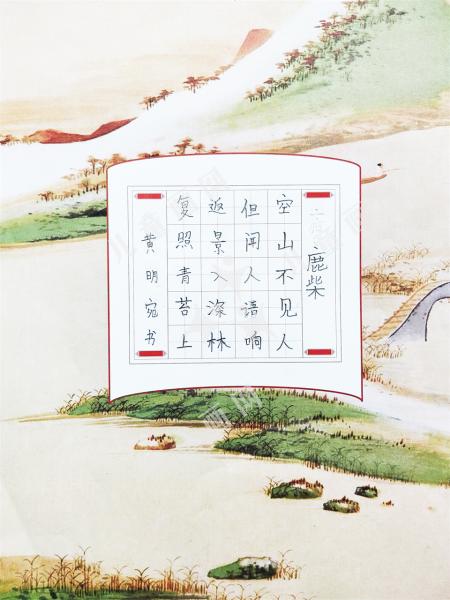 鹿柴
空山不见人
但闻人语响
返景入深林
复照青苔上
黄明宛书